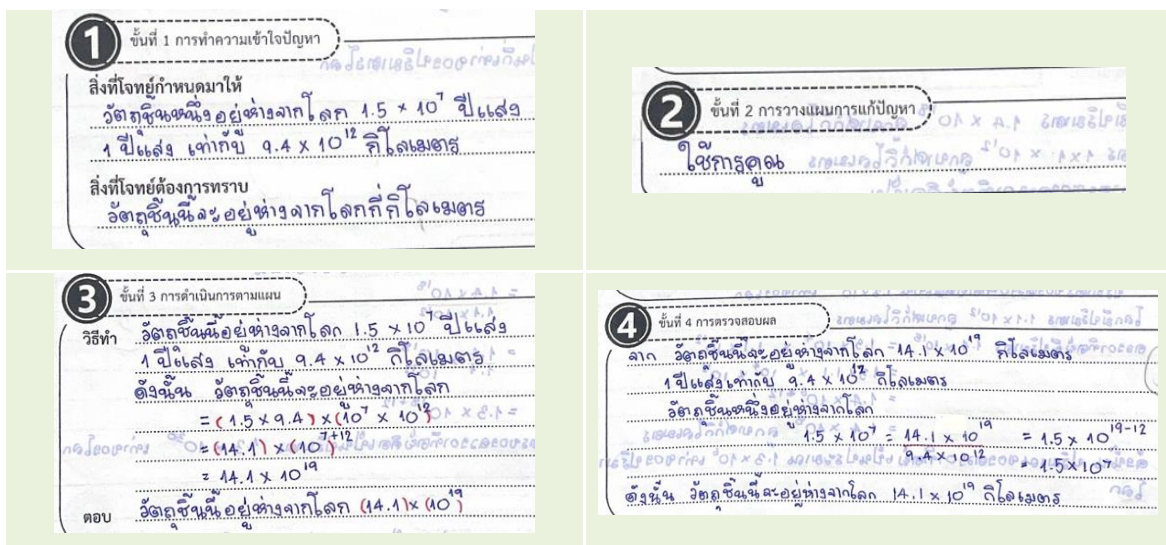 1 ขั้นที่ 1 การทำความเข้าใจปัญหา
สิ่งที่โจทย์กำหนดมาให้
วัตถุชิ้นหนึ่งอยู่ห่างจากโลก 1.5 × 10⁷ ปีแสง
1 ปีแสง เท่ากับ 9.4 × 10¹² กิโลเมตร
สิ่งที่โจทย์ต้องการทราบ
วัตถุชิ้นนี้จะอยู่ห่างจากโลกกี่กิโลเมตร
2 ขั้นที่ 2 การวางแผนการแก้ปัญหา
ใช้การคูณ
3 ขั้นที่ 3 การดำเนินการตามแผน
วิธีทำ วัตถุชิ้นนี้อยู่ห่างจากโลก 1.5 × 10⁷ ปีแสง
1 ปีแสง เท่ากับ 9.4 × 10¹² กิโลเมตร
ดังนั้น วัตถุชิ้นนี้จะอยู่ห่างจากโลก
= (1.5 × 9.4) × (10⁷ × 10¹²)
= (14.1) × (10⁷⁺¹²)
= 14.1 × 10¹⁹
ตอบ วัตถุชิ้นนี้อยู่ห่างจากโลก (14.1) × (10¹⁹)
4 ขั้นที่ 4 การตรวจสอบผล
จาก วัตถุชิ้นนี้จะอยู่ห่างจากโลก 14.1 × 10¹⁹ กิโลเมตร
1 ปีแสงเท่ากับ 9.4 × 10¹² กิโลเมตร
วัตถุชิ้นหนึ่งอยู่ห่างจากโลก
1.5 × 10⁷ = 14.1 × 10¹⁹ = 1.5 × 10¹⁹⁻¹²
9.4 × 10¹² = 1.5 × 10⁷
ดังนั้น วัตถุชิ้นนี้จะอยู่ห่างจากโลก 14.1 × 10¹⁹ กิโลเมตร